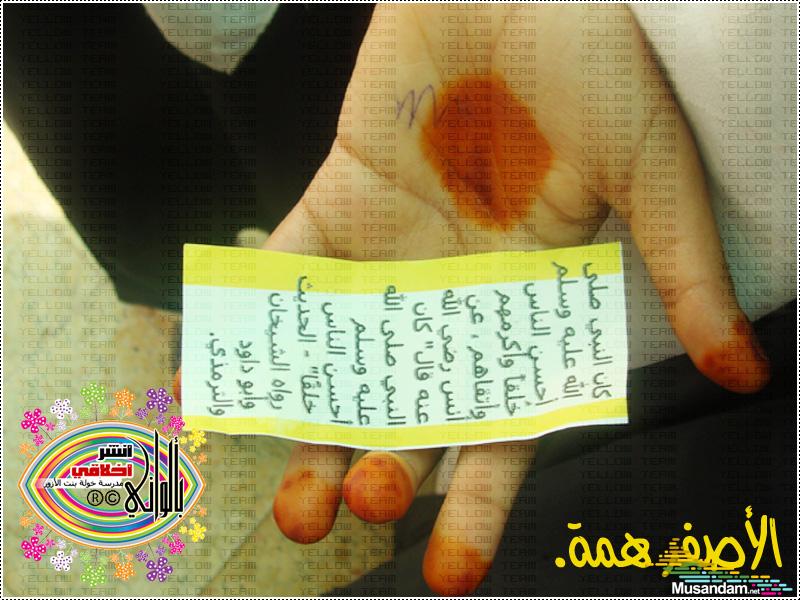 كان النبي صلى
الله عليه وسلم
أحسن الناس
خُلقاً وأكرمهم
وأتقاهم ، عن
أنس رضي الله
عنه قال "كان
النبي صلى الله
عليه وسلم
أحسن الناس
خلقًا" - الحديث
رواه الشيخان
وأبو داود
والترمذي.
انشر
اخلاقي
بألواني
مدرسة خولة بنت الأزور
®©
الأصفر همة.
Musandam.net
YELLOW
TEAM